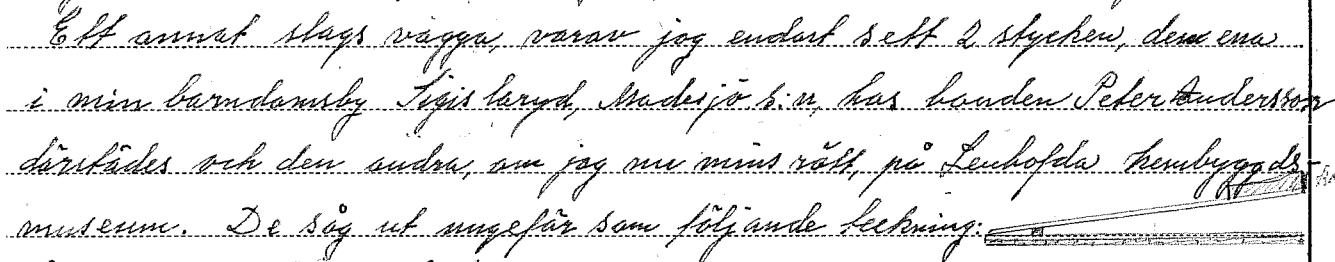 Ett annat slags vagga, varav jag endast sett 2 stycken, den ena
i min barndomsby Sigislaryd, Madesjö s:n, hos bonden Peter Andersson
därstädes och den andra, om jag nu mins rätt, på Lenhofda hembygds-
museum. De såg ut ungefär som följande teckning: